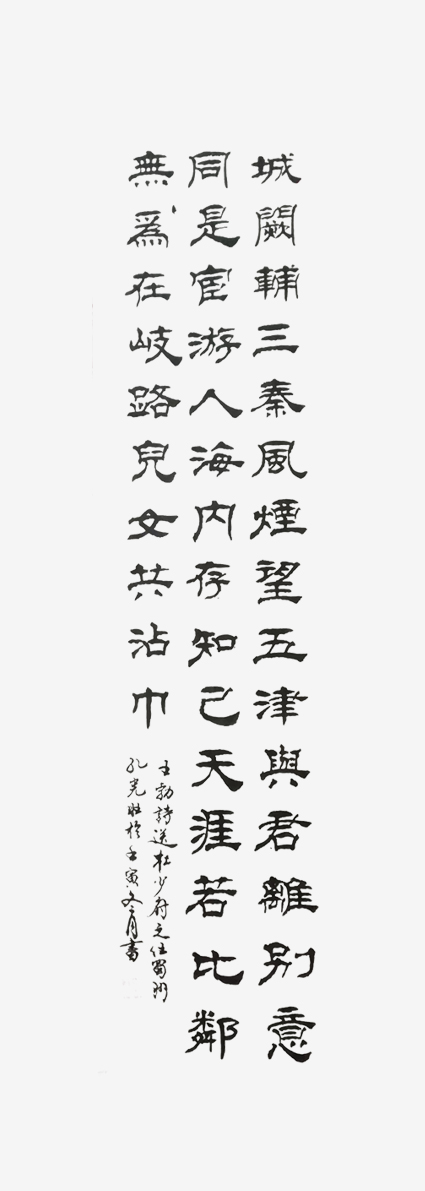 城闕輔三秦風煙望五津與君離別意
同是宦游人海内存知己天涯若比鄰
無爲在岐路兒女共沾巾
王勃詩送杜少府之任蜀州
孔光壯於壬寅冬月書